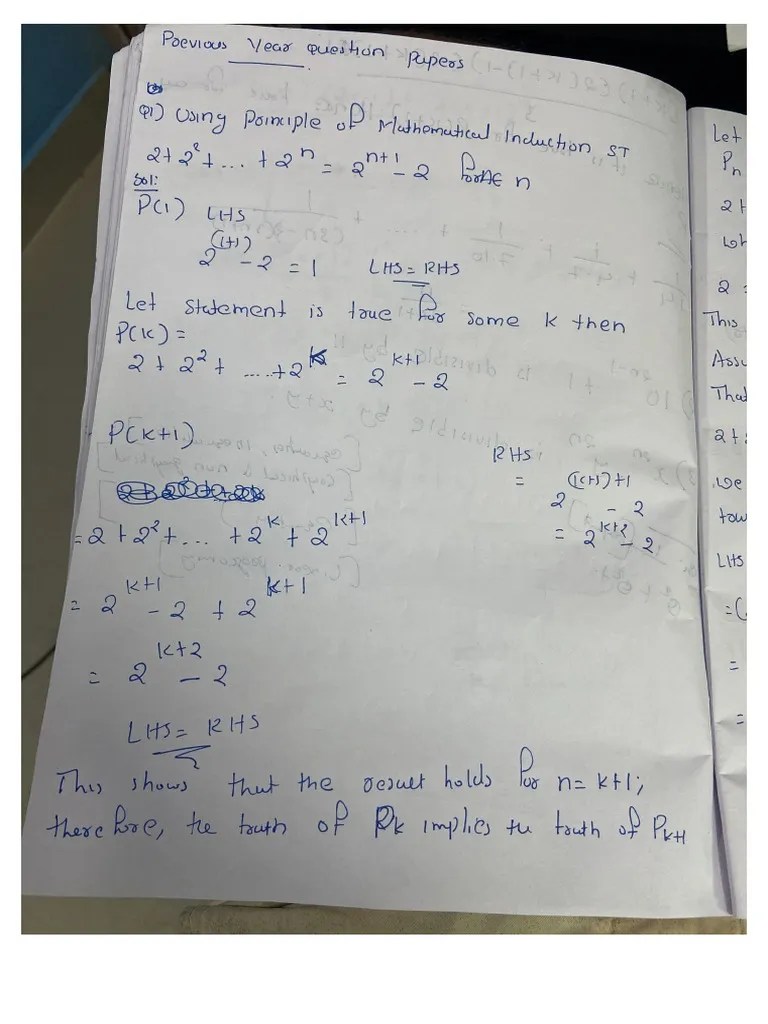 Previous Year Question Papers
Q1) Using Principle of Mathematical Induction ST
2+2²+...+2ⁿ = 2ⁿ⁺¹ - 2 for n
Sol:
P(1) LHS
2⁽¹⁺¹⁾ - 2 = 1 LHS = RHS
Let statement is true for some k then
P(k) =
2 + 2² + ....+2ᵏ = 2ᵏ⁺¹ - 2
P(k+1)
RHS
= 2⁽ᵏ⁺¹⁾⁺¹ - 2
= 2ᵏ⁺² - 2
= 2 + 2² + ... + 2ᵏ + 2ᵏ⁺¹
= 2ᵏ⁺¹ - 2 + 2ᵏ⁺¹
= 2ᵏ⁺² - 2
LHS = RHS
This shows that the result holds for n = k+1;
therefore, the truth of Pk implies the truth of Pk+1
Let
Pn
2+
2 =
This
Assu
That
2+
we
tow
LHS
=(
=
=